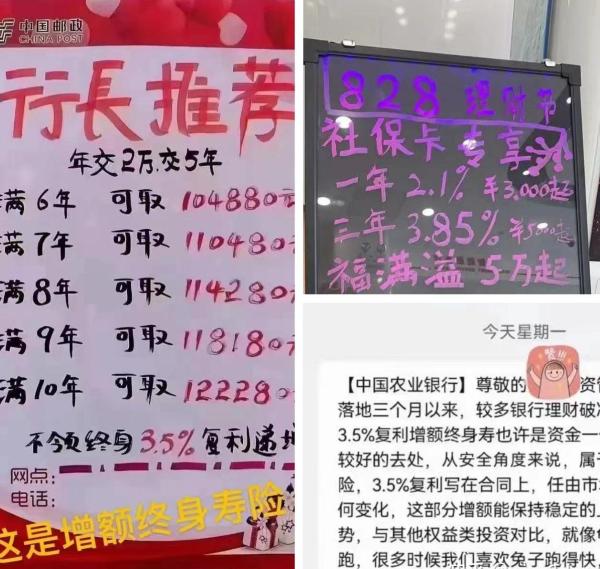 中国邮政
CHINA POST
行長推荐
年交2万.交5年
满6年 可取 104880元
满7年 可取 110480元
满8年 可取 114280
满9年 可取 118180元
满10年 可取 122280
不领终身3.5%复利递增
网点：
电话：
这是增额终身寿险
828 理财节
社保卡专享
一年 2.1% ¥3,000起
三年 3.85% ¥5000起
福满溢 5万起
今天星期一
【中国农业银行】尊敬的 资管
落地三个月以来，较多银行理财破
3.5%复利增额终身寿也许是资金一
较好的去处，从安全角度来说，属于
险，3.5%复利写在合同上，任由市
何变化，这部分增额能保持稳定的上
势，与其他权益类投资对比，就像
跑，很多时候我们喜欢兔子跑得快，